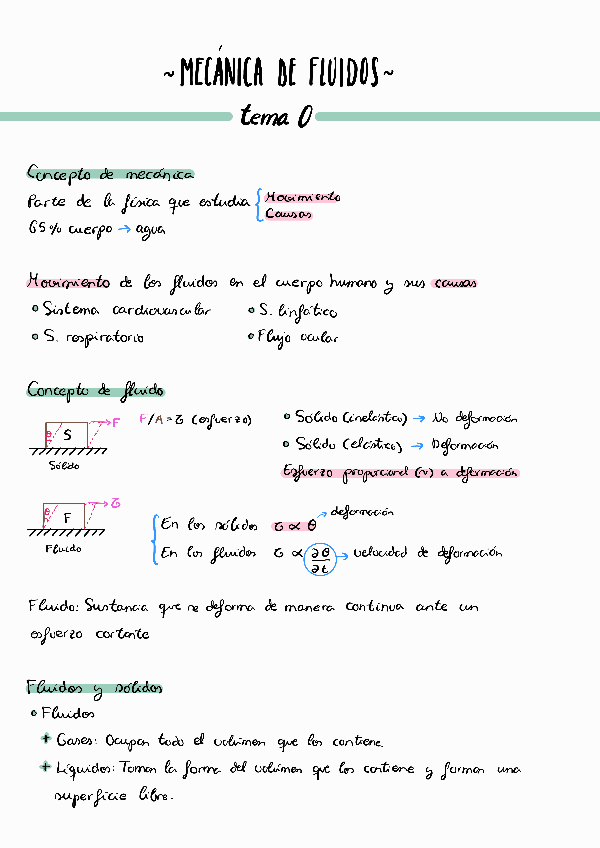 ~MECÁNICA DE FLUIDOS~
tema 0
Concepto de mecánica
Parte de la física que estudia { Movimiento
Causas
65% cuerpo → agua
Movimiento de los fluidos en el cuerpo humano y sus causas
• Sistema cardiovascular • S. linfático
• S. respiratorio • Flujo ocular
Concepto de fluido
θ S → F
Sólido
F/A = τ (esfuerzo)
• Sólido (inelástico) → No deformación
• Sólido (elástico) → Deformación
Esfuerzo proporcional (∝) a deformación
θ F → τ
Fluido
En los sólidos τ ∝ θ → deformación
En los fluidos τ ∝ ∂θ/∂t → velocidad de deformación
Fluido: Sustancia que se deforma de manera continua ante un
esfuerzo cortante
Fluidos y sólidos
• Fluidos
+ Gases: Ocupan todo el volumen que los contiene.
+ Líquidos: Toman la forma del volumen que los contiene y forman una
superficie libre.